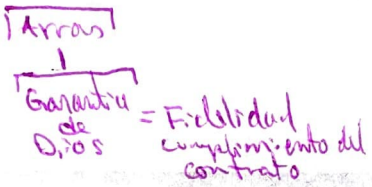 Arras
Garantia
de
Dios
= Fidelidad
cumplimiento del
contrato